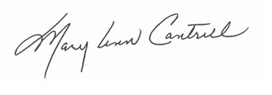 Mary Lynn Cantrell